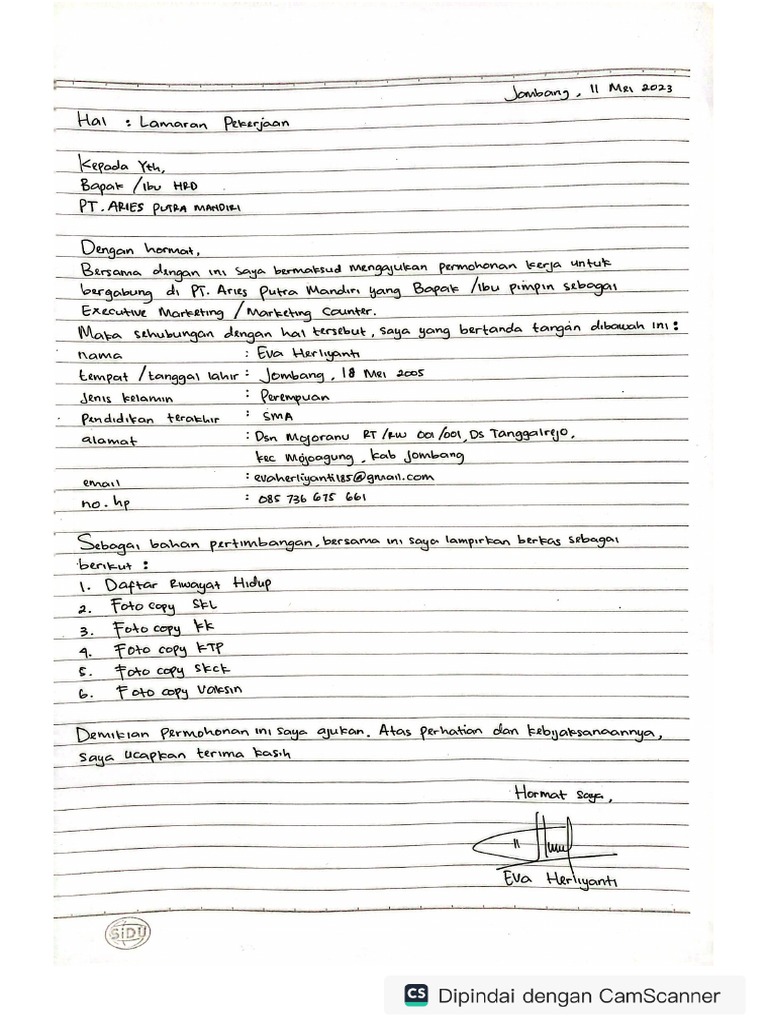 Jombang, 11 Mei 2023
Hal : Lamaran Pekerjaan
Kepada Yth,
Bapak /Ibu HRD
PT. ARIES PUTRA MANDIRI
Dengan hormat,
Bersama dengan ini saya bermaksud mengajukan permohonan kerja untuk
bergabung di PT. Aries Putra Mandiri yang Bapak /Ibu pimpin sebagai
Executive Marketing / Marketing Counter.
Maka sehubungan dengan hal tersebut, saya yang bertanda tangan dibawah ini :
nama : Eva Herliyanti
tempat /tanggal lahir : Jombang, 18 Mei 2005
jenis kelamin : Perempuan
pendidikan terakhir : SMA
alamat : Dsn Mojoranu RT /RW 001/001, Ds Tanggalrejo,
kec Mojoagung, kab Jombang
email : evaherliyanti185@gmail.com
no. hp : 085 736 675 661
Sebagai bahan pertimbangan, bersama ini saya lampirkan berkas sebagai
berikut :
1. Daftar Riwayat Hidup
2. Foto copy SKL
3. Foto copy KK
4. Foto copy KTP
5. Foto copy Skck
6. Foto copy Vaksin
Demikian permohonan ini saya ajukan. Atas perhatian dan kebijaksanaannya,
saya ucapkan terima kasih
Hormat saya,
Eva Herliyanti
SiDU
CS Dipindai dengan CamScanner